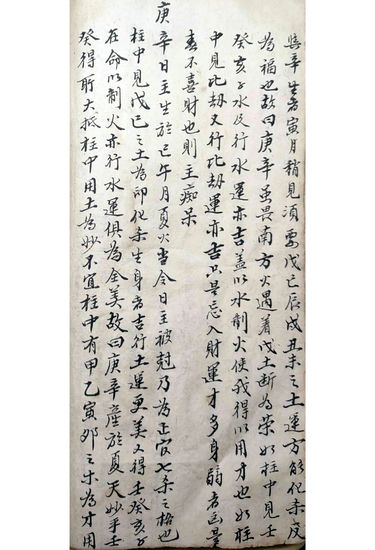 庚辛生者寅月稍見須要戊己辰戌丑未之土運方能化杀反
為福也故曰庚辛虽畏南方火遇着戊土断為荣如柱中見壬
癸亥子水及行水運亦吉盖以水制火使我得以用才也如柱
中見比劫又行比劫運亦吉只是忌入財運才多身弱者凶是
春不喜財也則主痴呆
庚辛日主生於巳午月夏火當令日主被尅乃為正官七杀之格也
柱中見戊己之土為印化杀生身者吉行土運更美又得壬癸亥子
在命以制火亦行水運俱為全美故曰庚辛產於夏天妙手壬
癸得所大抵柱中用土為妙不宜柱中有甲乙寅卯之木為才用